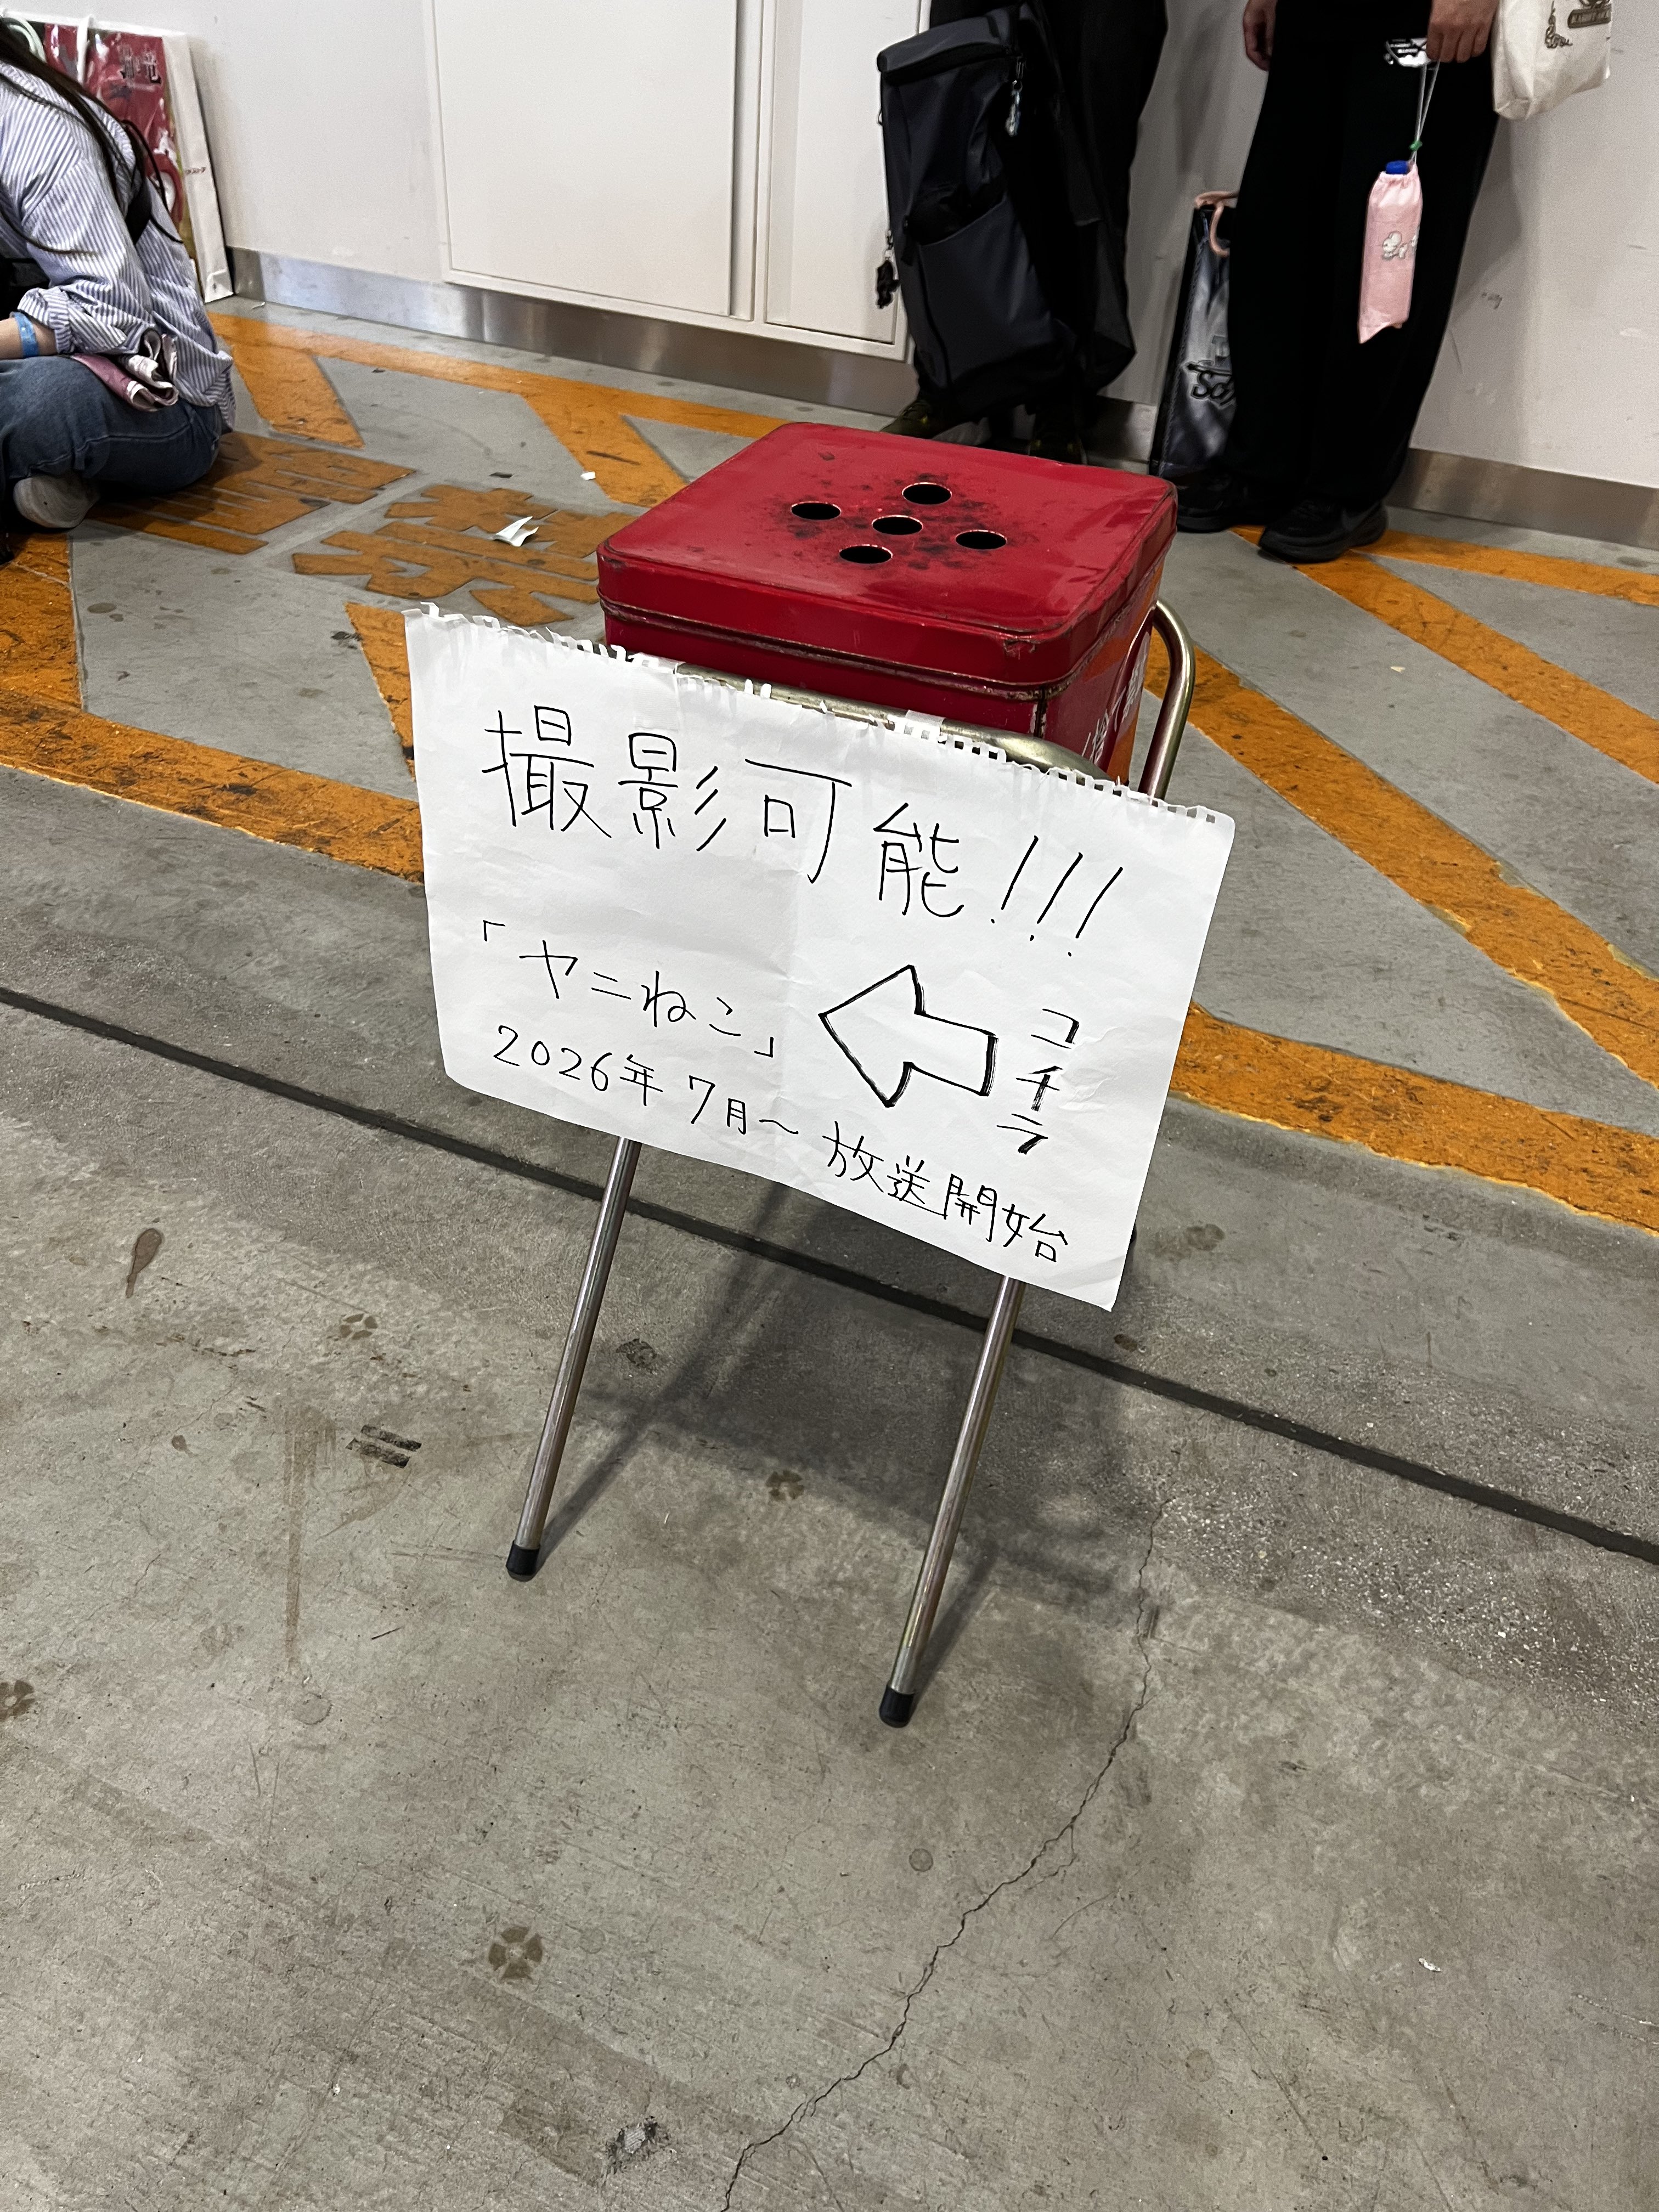 撮影可能!!!
「ヤニねこ」
コチラ
2026年7月～放送開始